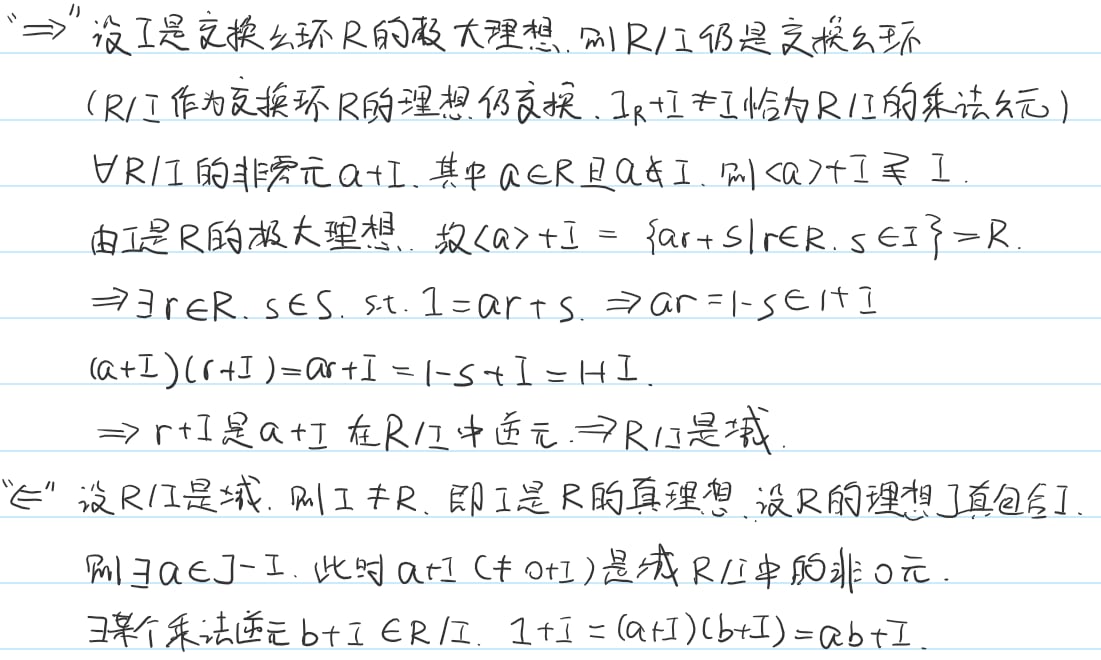 “⇒” 设I是交换幺环R的极大理想. 则R/I仍是交换幺环
(R/I作为交换环R的理想仍交换. 1_R+I≠I恰为R/I的乘法幺元)
∀R/I的非零元a+I. 其中a∈R且a∉I. 则<a>+I⊋I.
由I是R的极大理想. 故<a>+I = {ar+s|r∈R. s∈I}=R.
⇒∃r∈R. s∈S. s.t. 1=ar+s. ⇒ar=1-s∈1+I
(a+I)(r+I)=ar+I=1-s+I=1+I.
⇒r+I是a+I在R/I中逆元.⇒R/I是域.
“⇐” 设R/I是域. 则I≠R. 即I是R的真理想.设R的理想J真包含I.
则∃a∈J-I. 此时a+I(≠0+I)是域R/I中的非0元.
∃某个乘法逆元b+I∈R/I. 1+I=(a+I)(b+I)=ab+I.